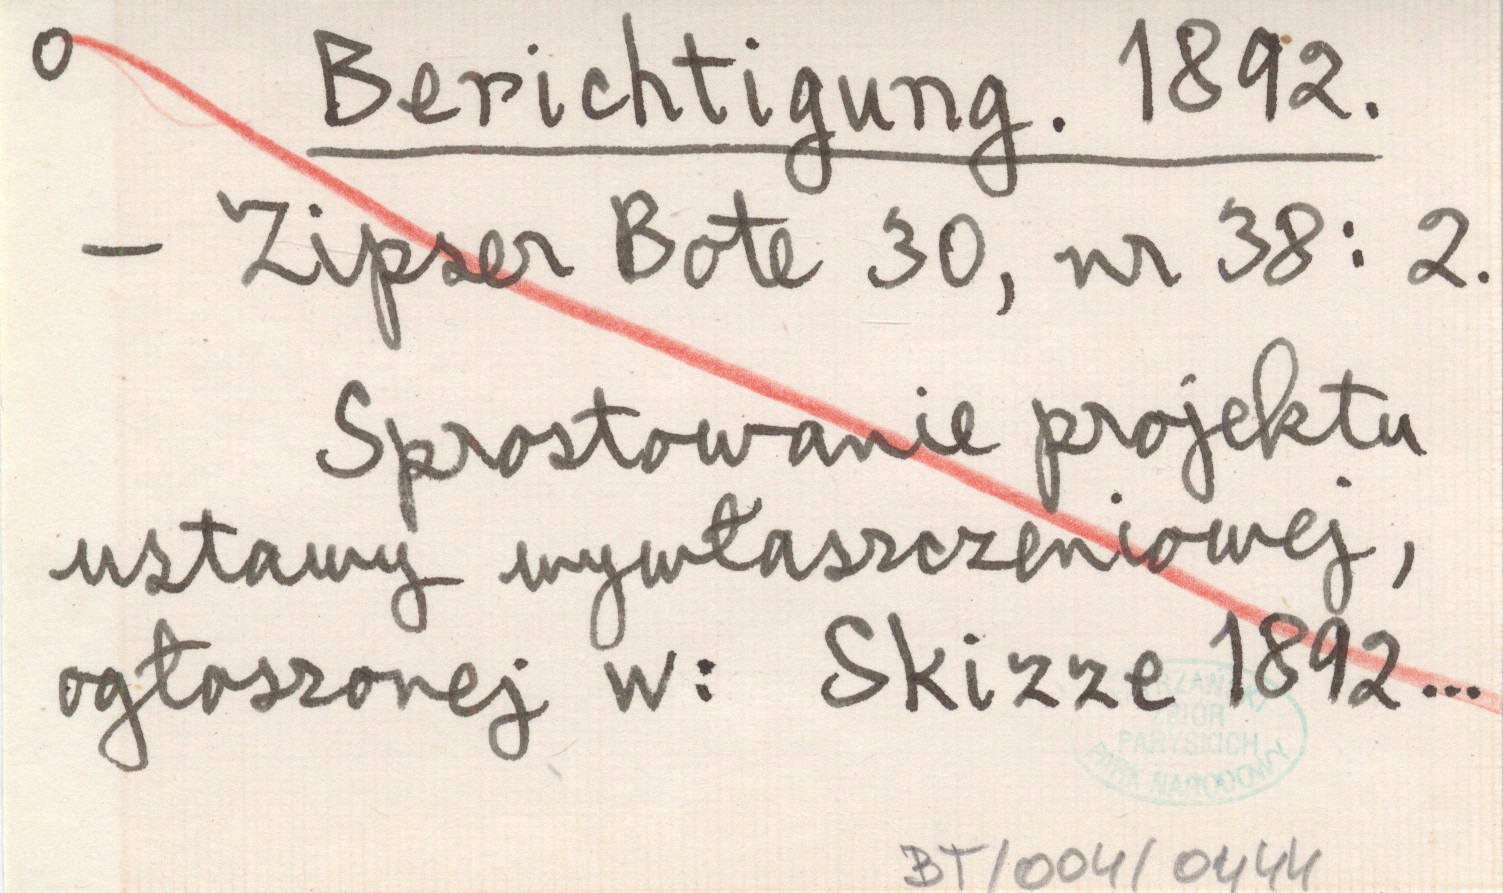 o Berichtigung. 1892.
– Zipser Bote 30, nr 38: 2.
Sprostowanie projektu
ustawy wywłaszczeniowej,
ogłoszonej w: Skizze 1892...
ZBIÓR
PARYSKICH
PARK NARODOWY
BT/004/0444